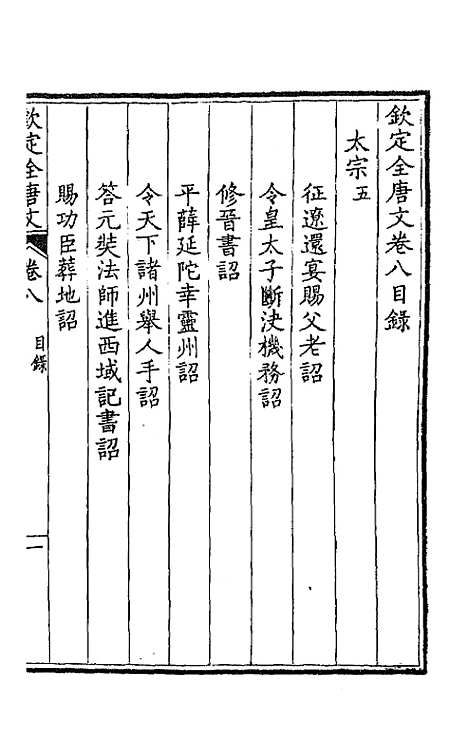 欽定全唐文卷八目錄
太宗五
征遼還宴賜父老詔
令皇太子斷決機務詔
修晉書詔
平薛延陀幸靈州詔
令天下諸州舉人手詔
答元奘法師進西域記書詔
賜功臣葬地詔
欽定全唐文 卷八 目錄 一